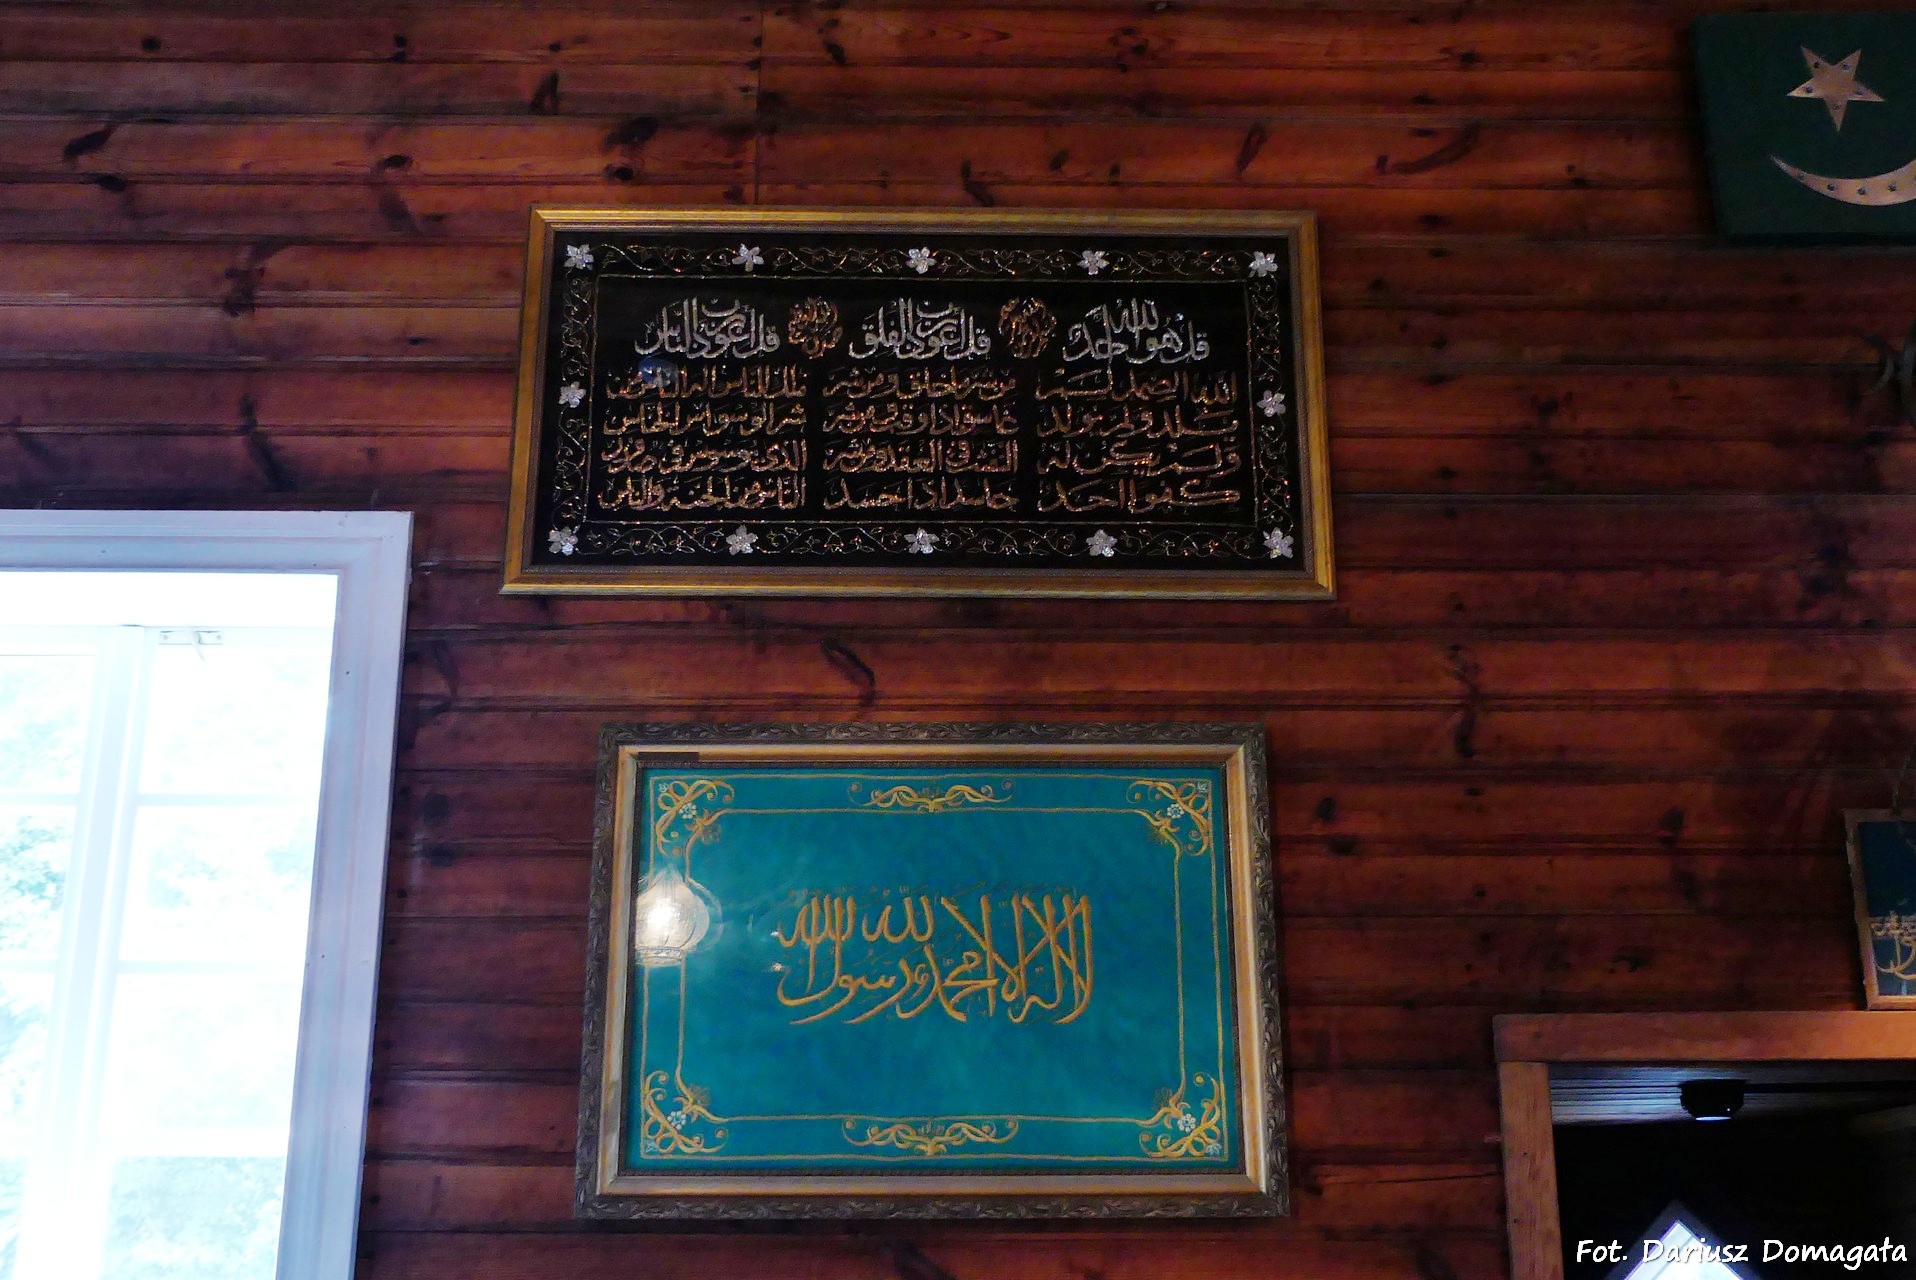 قل هو الله احد
الله الصمد لم
يلد ولم يولد
ولم يكن له
كفوا احد
قل اعوذ برب الفلق
من شر ما خلق ومن شر
غاسق اذا وقب ومن شر
النفثت في العقد ومن شر
حاسد اذا حسد
قل اعوذ برب الناس
ملك الناس اله الناس من
شر الوسواس الخناس
الذي يوسوس في صدور
الناس من الجنة والناس
لا اله الا الله محمد رسول الله
Fot. Dariusz Domagała